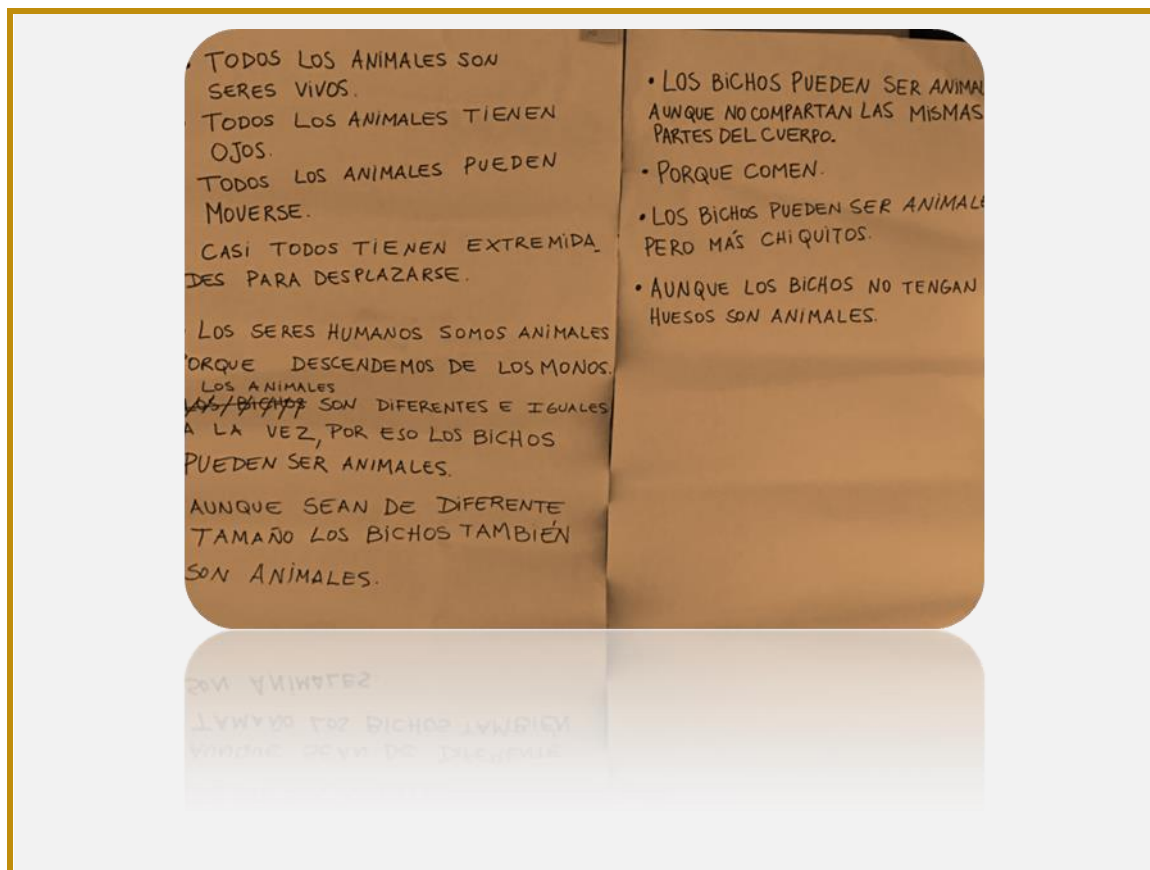 • TODOS LOS ANIMALES SON
SERES VIVOS.
• TODOS LOS ANIMALES TIENEN
OJOS.
TODOS LOS ANIMALES PUEDEN
MOVERSE.
CASI TODOS TIENEN EXTREMIDA_
DES PARA DESPLAZARSE.
• LOS SERES HUMANOS SOMOS ANIMALES
PORQUE DESCENDEMOS DE LOS MONOS.
LOS ANIMALES
LOS BICHOS SON DIFERENTES E IGUALES
A LA VEZ, POR ESO LOS BICHOS
PUEDEN SER ANIMALES.
AUNQUE SEAN DE DIFERENTE
TAMAÑO LOS BICHOS TAMBIÉN
SON ANIMALES.
• LOS BICHOS PUEDEN SER ANIMAL
AUNQUE NO COMPARTAN LAS MISMAS
PARTES DEL CUERPO.
• PORQUE COMEN.
• LOS BICHOS PUEDEN SER ANIMALE
PERO MÁS CHIQUITOS.
• AUNQUE LOS BICHOS NO TENGAN
HUESOS SON ANIMALES.